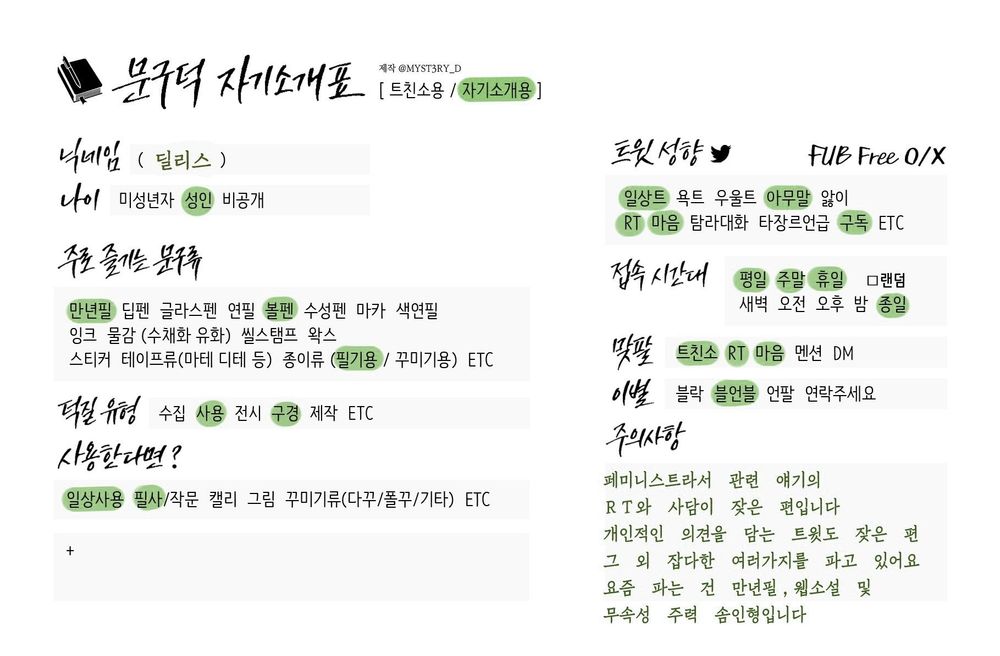 문구덕 자기소개표
제작 @MYST3RY_D
[ 트친소용 / 자기소개용 ]
닉네임 ( 딜리스 )
나이 미성년자 성인 비공개
주로 즐기는 문구류
만년필 딥펜 글라스펜 연필 볼펜 수성펜 마카 색연필
잉크 물감 (수채화 유화) 씰스탬프 왁스
스티커 테이프류(마테 디테 등) 종이류 (필기용 / 꾸미기용) ETC
덕질 유형 수집 사용 전시 구경 제작 ETC
사용한다면?
일상사용 필사/작문 캘리 그림 꾸미기류(다꾸/폴꾸/기타) ETC
+
트윗 성향 FUB Free O/X
일상트 욕트 우울트 아무말 앓이
RT 마음 탐라대화 타장르언급 구독 ETC
접속 시간대 평일 주말 휴일 □랜덤
새벽 오전 오후 밤 종일
맞팔 트친소 RT 마음 멘션 DM
이별 블락 블언블 언팔 연락주세요
주의사항
페미니스트라서 관련 얘기의
RT와 사담이 잦은 편입니다
개인적인 의견을 담는 트윗도 잦은 편
그 외 잡다한 여러가지를 파고 있어요
요즘 파는 건 만년필, 웹소설 및
무속성 주력 솜인형입니다